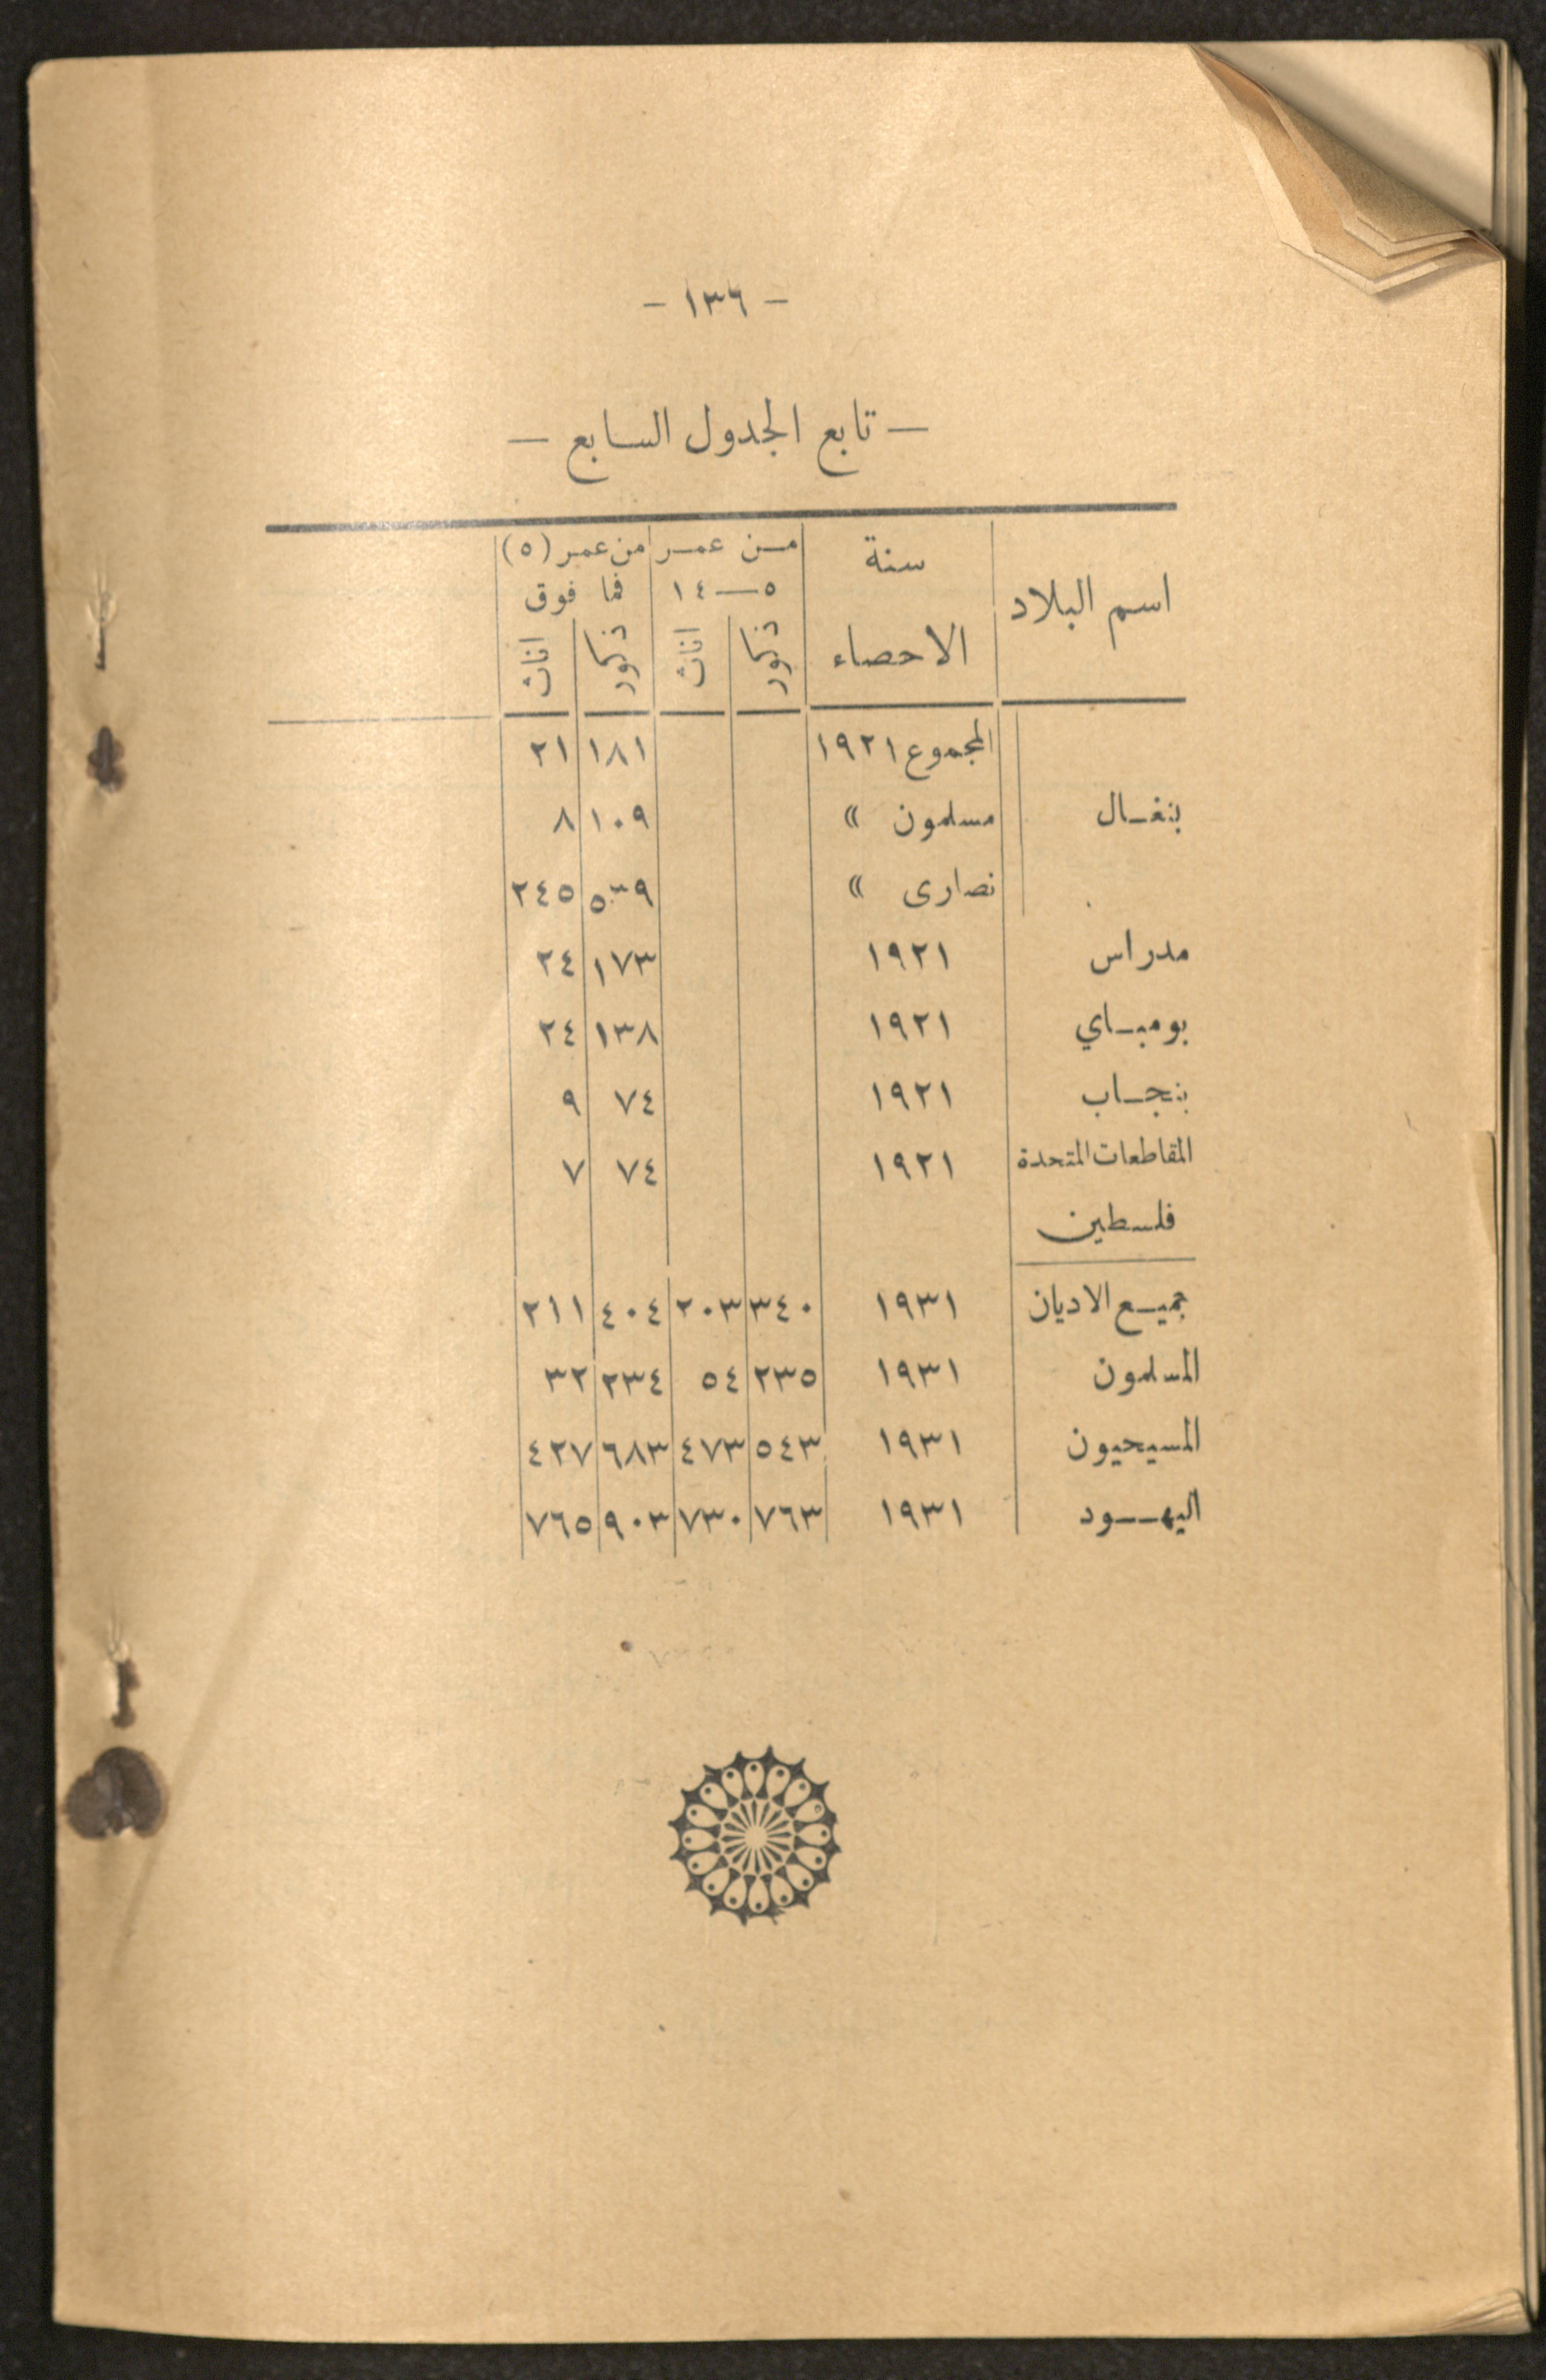 - ١٣٦ -
— تابع الجدول السابع —
اسم البلاد سنة الاحصاء من عمر ٥—١٤ من عمر (٥) فما فوق
ذكور اناث ذكور اناث
المجموع ١٩٢١ ١٨١ ٢١
بنغال مسلمون » ١٠٩ ٨
نصارى » ٥٣٩ ٢٤٥
مدراس ١٩٢١ ١٧٣ ٢٤
بومباي ١٩٢١ ١٣٨ ٢٤
بنجاب ١٩٢١ ٧٤ ٩
المقاطعات المتحدة ١٩٢١ ٧٤ ٧
فلسطين
جميع الاديان ١٩٣١ ٣٤٠ ٢٠٣ ٤٠٤ ٢١١
المسلمون ١٩٣١ ٢٣٥ ٥٤ ٢٣٤ ٣٢
المسيحيون ١٩٣١ ٥٤٣ ٤٧٣ ٦٨٣ ٤٢٧
اليهود ١٩٣١ ٧٦٣ ٧٣٠ ٩٠٣ ٧٦٥